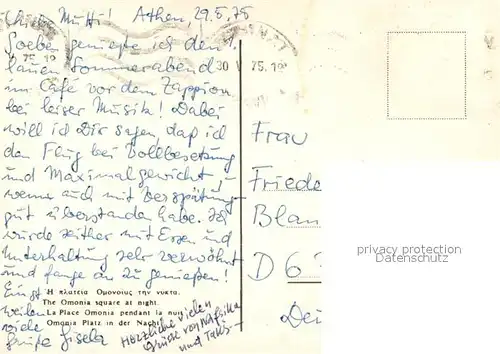 Mutti! Athen, 29.5.75
Soeben genieße ich den 1.
lauen Sommerabend
im Café vor dem Zappion
bei leiser Musik! Dabei
will ich Dir sagen, daß ich
den Flug bei Vollbesetzung
und Maximalgewicht,
wenn auch mit Verspätung
gut überstanden habe. Ich
wurde seither mit Essen und
Unterhaltung sehr verwöhnt
und fange an zu genießen!
Einst
weilen
viele
Grüße Gisela
Herzliche vielen
Grüße von Nafsika
und Takis
Ἡ πλατεῖα Ὁμονοίας τὴν νύκτα.
The Omonia square at night.
La Place Omonia pendant la nuit
Omonia Platz in der Nacht
30 V 75.19
75.19
Frau
Friede
Blan
D 6
Dei
privacy protection
Datenschutz